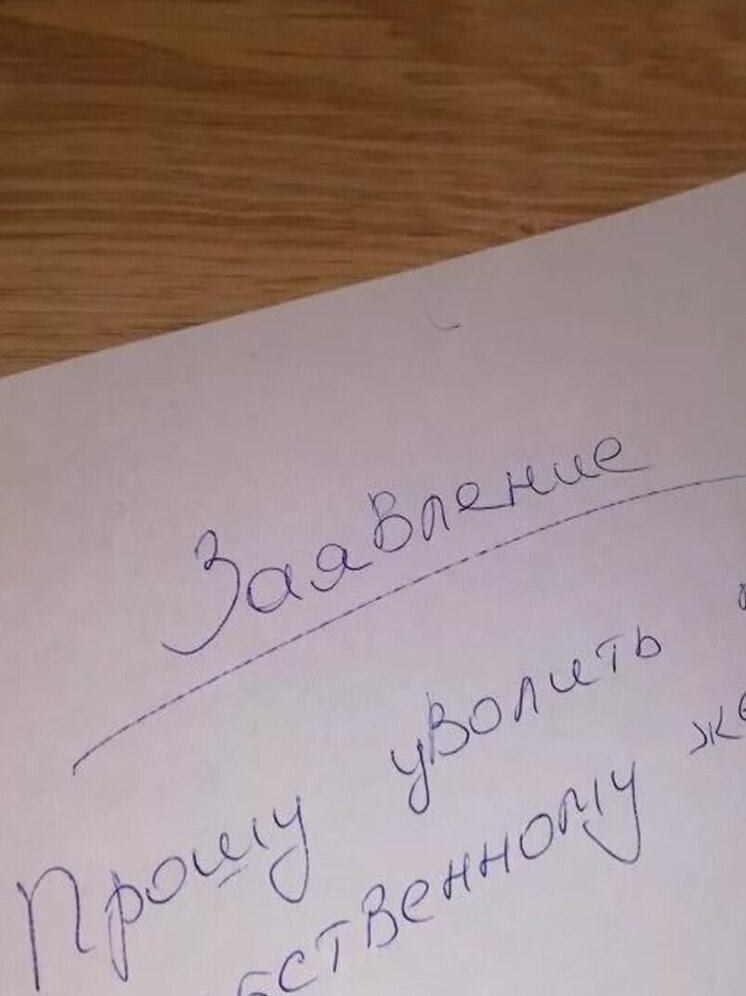 Заявление
Прошу уволить
бственному же